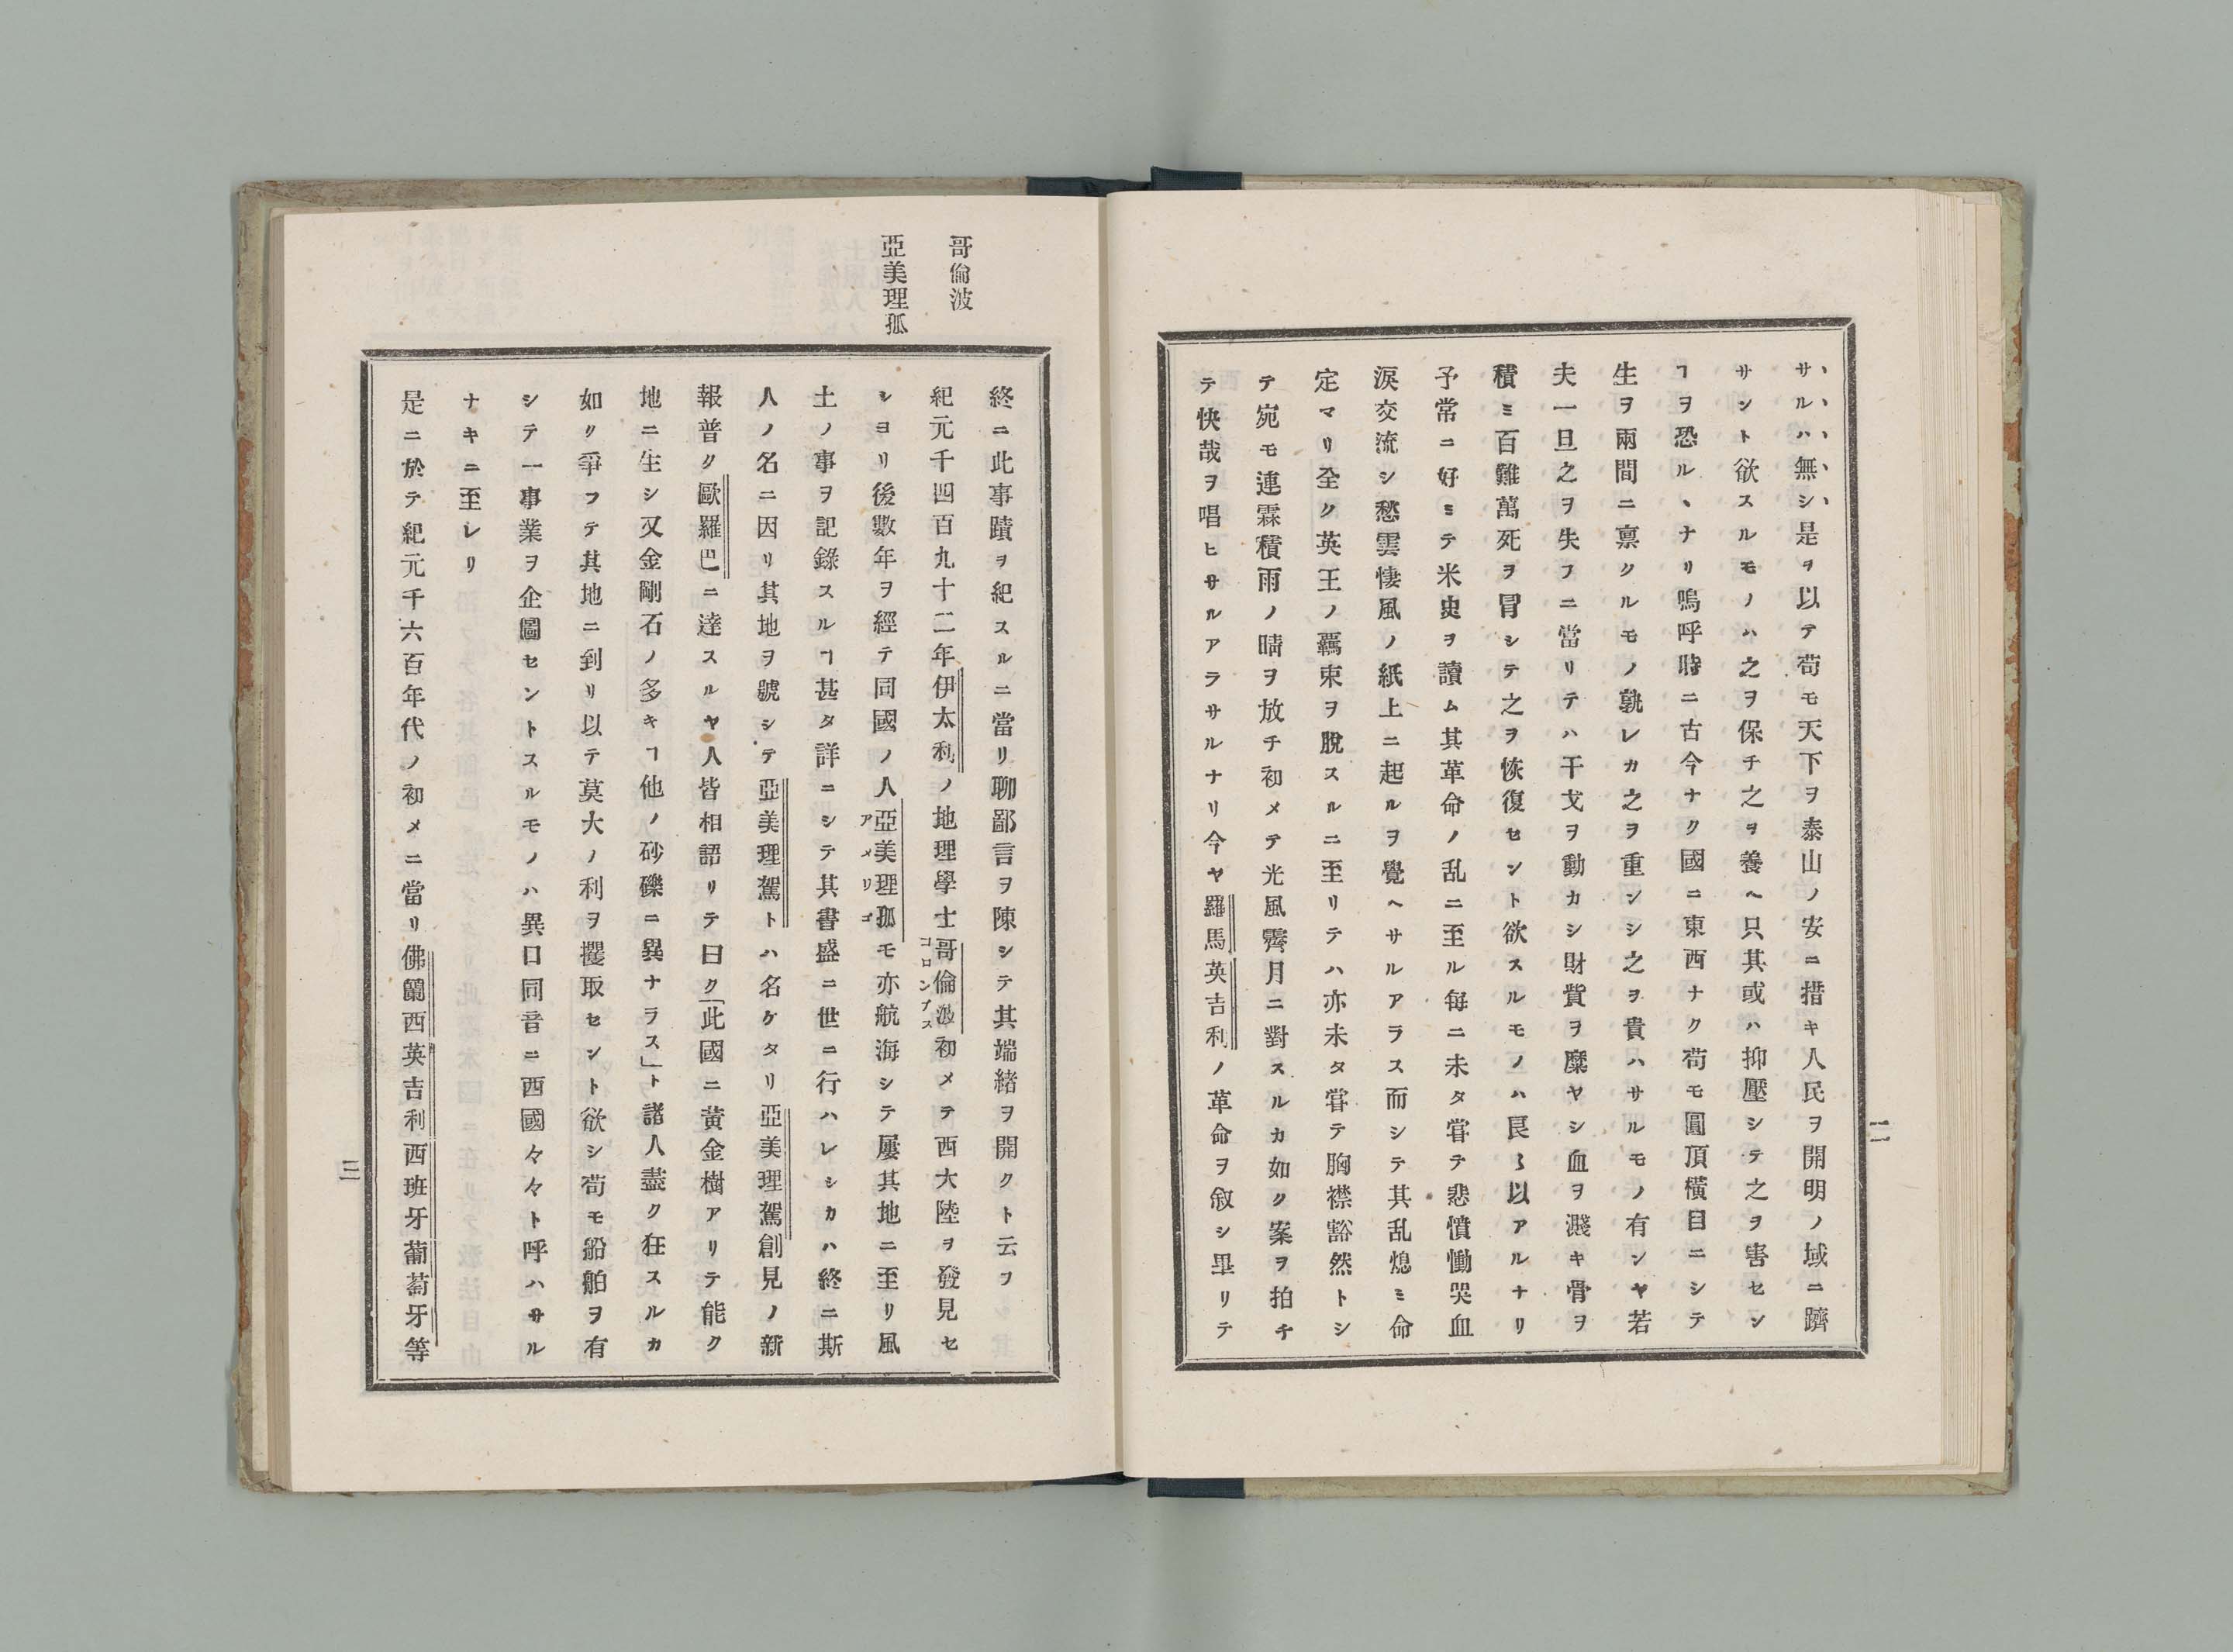 サルハ無シ是ヲ以テ苟モ天下ヲ泰山ノ安ニ措キ人民ヲ開明ノ域ニ躋
サント欲スルモノハ之ヲ保チ之ヲ養ヘ只其或ハ抑壓シテ之ヲ害セン
ヿヲ恐ルヽナリ嗚呼時ニ古今ナク國ニ東西ナク苟モ圓頂橫目ニシテ
生ヲ兩間ニ禀クルモノ孰レカ之ヲ重ンシ之ヲ貴ハサルモノ有ンヤ若
夫一旦之ヲ失フニ當リテハ干戈ヲ動カシ財貲ヲ糜ヤシ血ヲ濺キ骨ヲ
積ミ百難萬死ヲ冒シテ之ヲ恢復セント欲スルモノハ良〻以アルナリ
予常ニ好ミテ米史ヲ讀ム其革命ノ乱ニ至ル每ニ未タ甞テ悲憤慟哭血
淚交流シ愁雲悽風ノ紙上ニ起ルヲ覺ヘサルアラス而シテ其乱熄ミ命
定マリ全ク英王ノ羈束ヲ脫スルニ至リテハ亦未タ甞テ胸襟豁然トシ
テ宛モ連霖積雨ノ晴ヲ放チ初メテ光風霽月ニ對スルカ如ク案ヲ拍チ
テ快哉ヲ唱ヒサルアラサルナリ今ヤ羅馬英吉利ノ革命ヲ叙シ畢リテ
二
哥倫波
亞美理孤
終ニ此事蹟ヲ紀スルニ當リ聊鄙言ヲ陳シテ其端緒ヲ開クト云フ
紀元千四百九十二年伊太利ノ地理學士哥倫波初メテ西大陸ヲ發見セ
コロンブス
シヨリ後數年ヲ經テ同國ノ人亞美理孤モ亦航海シテ屢其地ニ至リ風
アメリゴ
土ノ事ヲ記錄スルヿ甚タ詳ニシテ其書盛ニ世ニ行ハレシカハ終ニ斯
人ノ名ニ因リ其地ヲ號シテ亞美理駕トハ名ケタリ亞美理駕創見ノ新
報普ク歐羅巴ニ達スルヤ人皆相語リテ曰ク「此國ニ黃金樹アリテ能ク
地ニ生シ又金剛石ノ多キヿ他ノ砂礫ニ異ナラス」ト諸人盡ク狂スルカ
如ク爭フテ其地ニ到リ以テ莫大ノ利ヲ攫取セント欲シ苟モ船舶ヲ有
シテ一事業ヲ企圖セントスルモノハ異口同音ニ西國々々ト呼ハサル
ナキニ至レリ
是ニ於テ紀元千六百年代ノ初メニ當リ佛蘭西英吉利西班牙葡萄牙等
三